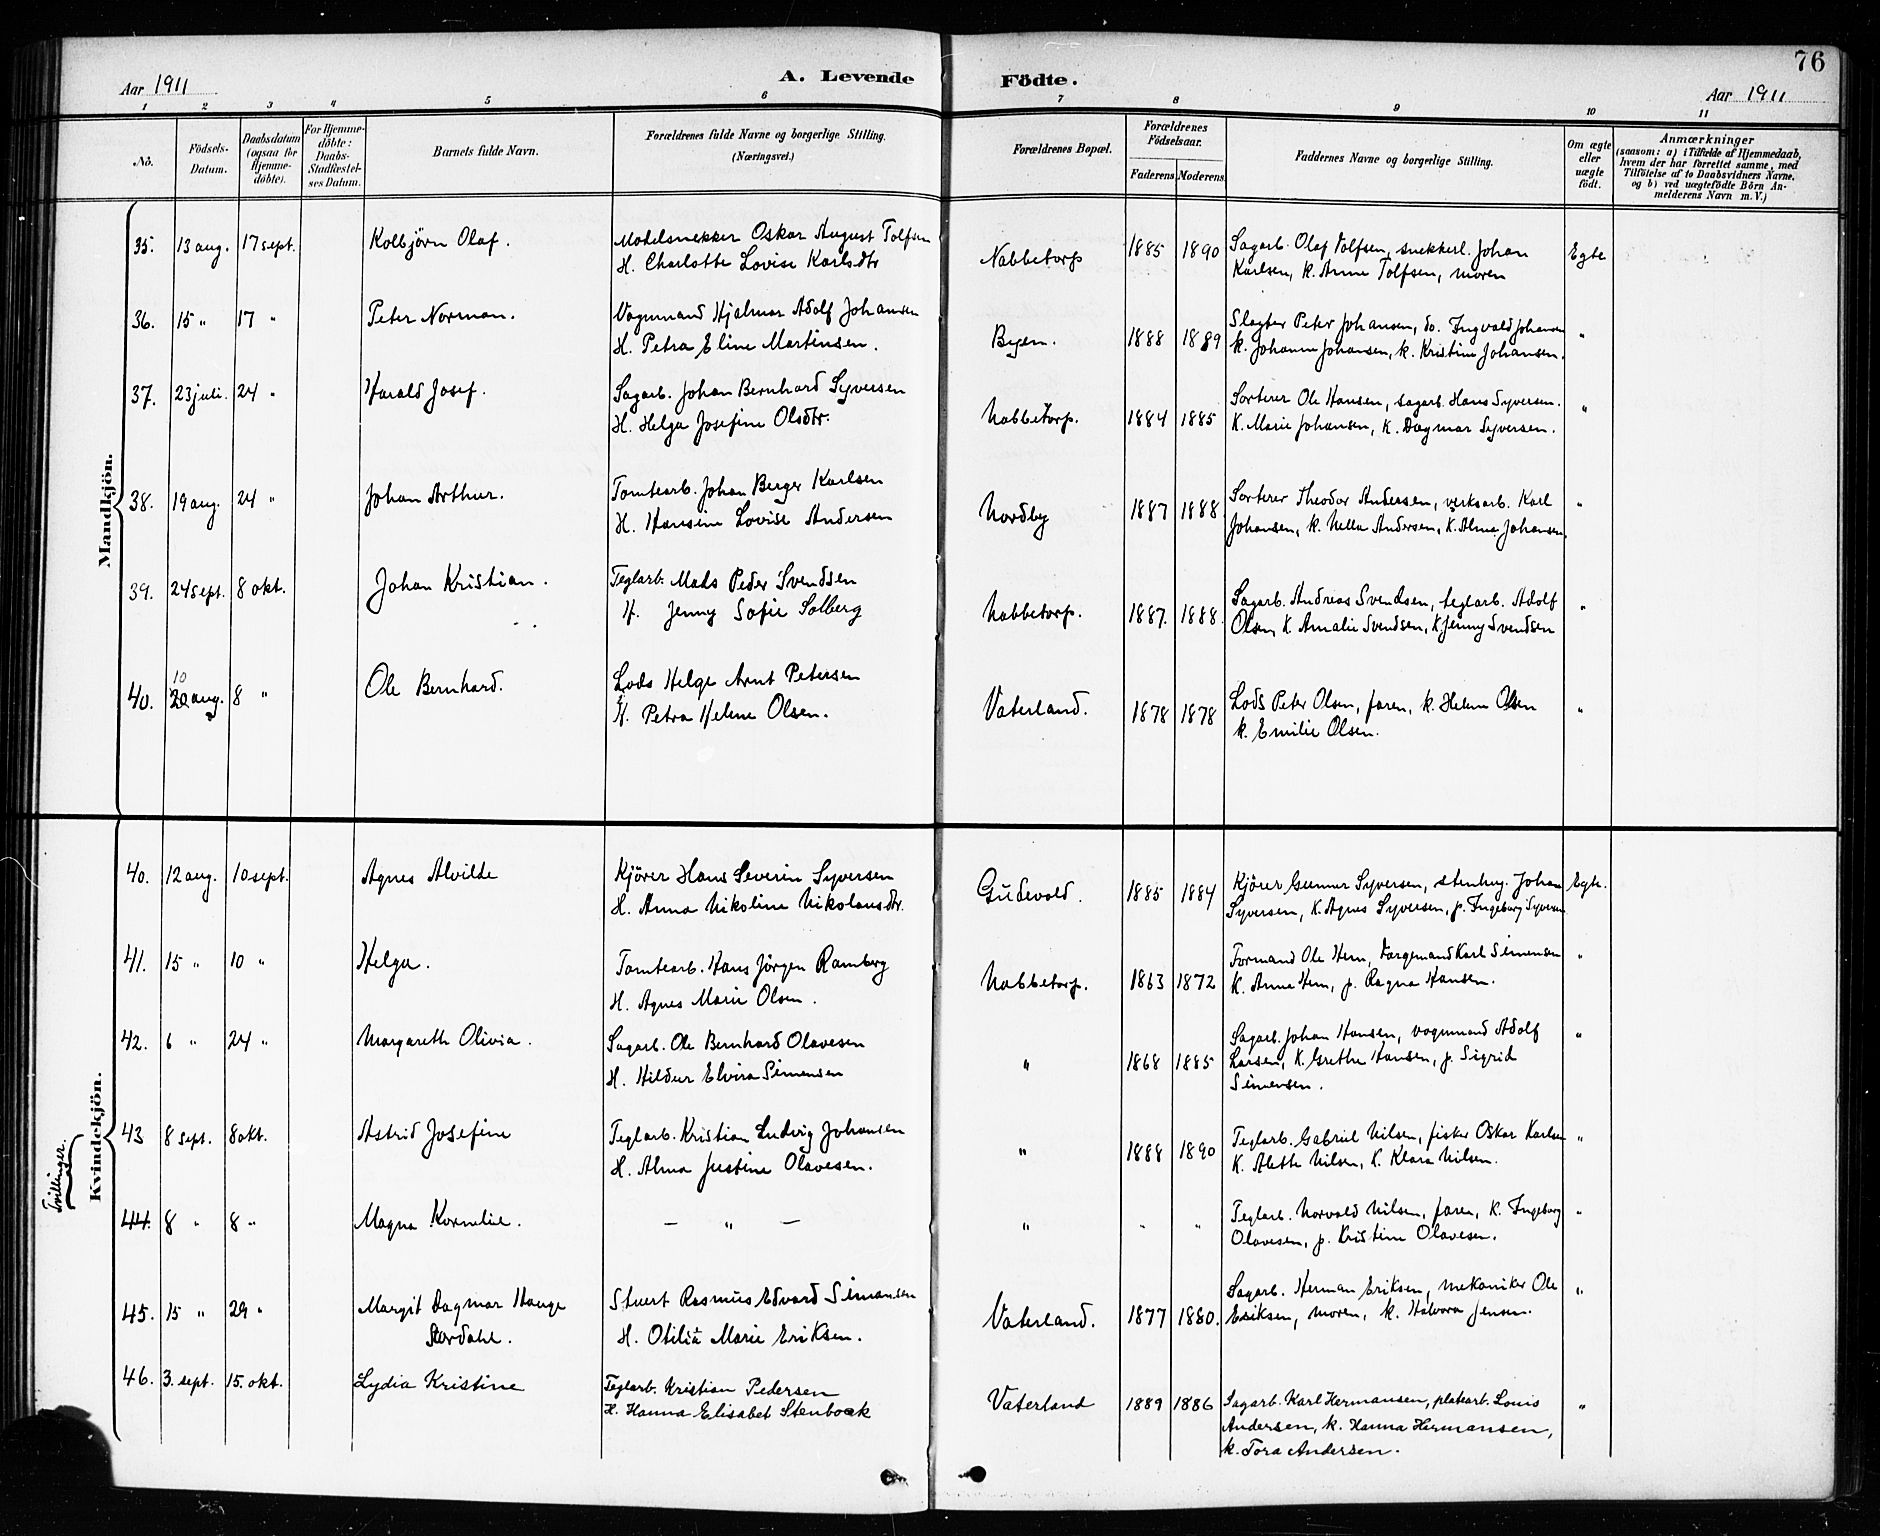 76
Aar 1911
A. Levende
Födte.
Aar 1911
1 2 3 4 5 6 7 8 9 10 11
No.
Födsels-
Datum.
Daabsdatum
(ogsaa for
Hjemme-
döbte).
For Hjemme-
döbte:
Daabs-
Stadfæstel-
ses Datum.
Barnets fulde Navn.
Forældrenes fulde Navne og borgerlige Stilling.
(Næringsvei.)
Forældrenes Bopæl.
Forældrenes
Födselsaar.
Faderens Moderens.
Faddernes Navne og borgerlige Stilling.
Om ægte
eller
uægte
födt.
Anmærkninger
(saasom: a) i Tilfælde af Hjemmedaab,
hvem der har forrettet samme, med
Tilföielse af to Daabsvidners Navne,
og b) ved uægtefödte Börn An-
melderens Navn m. V.)
Mandkjön.
35. 13 aug. 17 sept. Kolbjörn Olaf.
Modelsnekker Oskar August Tolfsen
H. Charlotte Lovise Karlsdtr
Nabbetorp 1885 1890
Sagarb. Olaf Tolfsen, snekkerl. Johan
Karlsen, k. Anne Tolfsen, moren
Egte
36. 15 " 17 " Peter Norman.
Vognmand Hjalmar Adolf Johansen
H. Petra Eline Martinsen.
Byen. 1888 1889
Slagter Peter Johansen, do. Ingvald Johansen
k. Johanne Johansen, k. Kristine Johansen.
"
37. 23 juli. 24 " Harald Josef.
Sagarb. Johan Bernhard Syversen
H. Helga Josefine Olsdtr.
Nabbetorp. 1884 1885
Sorterer Ole Hansen, sagarb. Hans Syversen.
K. Marie Johansen, K. Dagmar Syversen.
"
38. 19 aug. 24 " Johan Arthur.
Tomtearb. Johan Berger Karlsen
H. Hansine Lovise Andersen
Nordby 1887 1888
Sorterer Theodor Andersen, verksarb. Karl
Johansen, k. Nella Andersen, K. Alma Johansen
"
39. 24 sept. 8 okt. Johan Kristian.
Teglarb. Mads Peder Svendsen
H. Jenny Sofie Solberg
Nabbetorp. 1887. 1888.
Sagarb. Andreas Svendsen, teglarb. Adolf
Olsen, K. Amalie Svendsen, K Jenny Svendsen
"
10
40. 20 aug. 8 " Ole Bernhard.
Lods Helge Arnt Petersen
H. Petra Helene Olsen.
Vaterland. 1878 1878
Lods Peter Olsen, faren, k. Helene Olsen
k. Emilie Olsen.
"
Kvindekjön.
40. 12 aug. 10 sept. Agnes Alvilde
Kjörer Hans Severin Syversen
H. Anna Nikoline Nikolausdtr.
Gudevold. 1885 1884
Kjörer Gunnar Syversen, stenhug. Johan
Syversen, K. Agnes Syversen, p. Ingeborg Syversen
Egte.
41. 15 " 10 " Helga.
Tomtearb. Hans Jörgen Ramberg
H. Agnes Marie Olsen.
Nabbetorp. 1863 1872
Formand Ole Hem, Karl Simensen
K. Anne Hem, p. Ragna Hansen.
"
42. 6 " 24 " Margareth Olivia.
Sagarb. Ole Bernhard Olavesen
H. Hildur Elvira Simensen
" 1868 1885
Sagarb. Johan Hansen, vognmand Adolf
Larsen, K. Grethe Hansen, p. Sigrid
Simensen.
"
Tvillinger.
43 8 sept. 8 okt. Astrid Josefine
Teglarb. Kristian Ludvig Johansen
H. Alma Justine Olavesen.
" 1888 1890
Teglarb. Gabriel Nilsen, fisker Oskar Karlsen
K. Alette Nilsen, K. Klara Nilsen.
"
44. 8 " 8 " Magna Kornelie.
— " —
" " "
Teglarb. Norvald Nilsen, faren, K. Ingeborg
Olavesen, p. Kristine Olavesen.
"
45. 15 " 29 " Margit Dagmar Hauge
Stordahl.
Stuert Rasmus Edvard Simonsen
H. Otilia Marie Eriksen.
Vaterland. 1877 1880.
Sagarb. Herman Eriksen, mekaniker Ole
Eriksen, moren, k. Halvora Jensen.
"
46. 3. sept. 15. okt. Lydia Kristine
Teglarb. Kristian Pedersen
H. Hanna Elisabet Stenboek
Vaterland 1889 1886
Sagarb. Karl Hermansen, platearb. Louis
Andersen, k. Hanna Hermansen,
k. Tora Andersen.
"